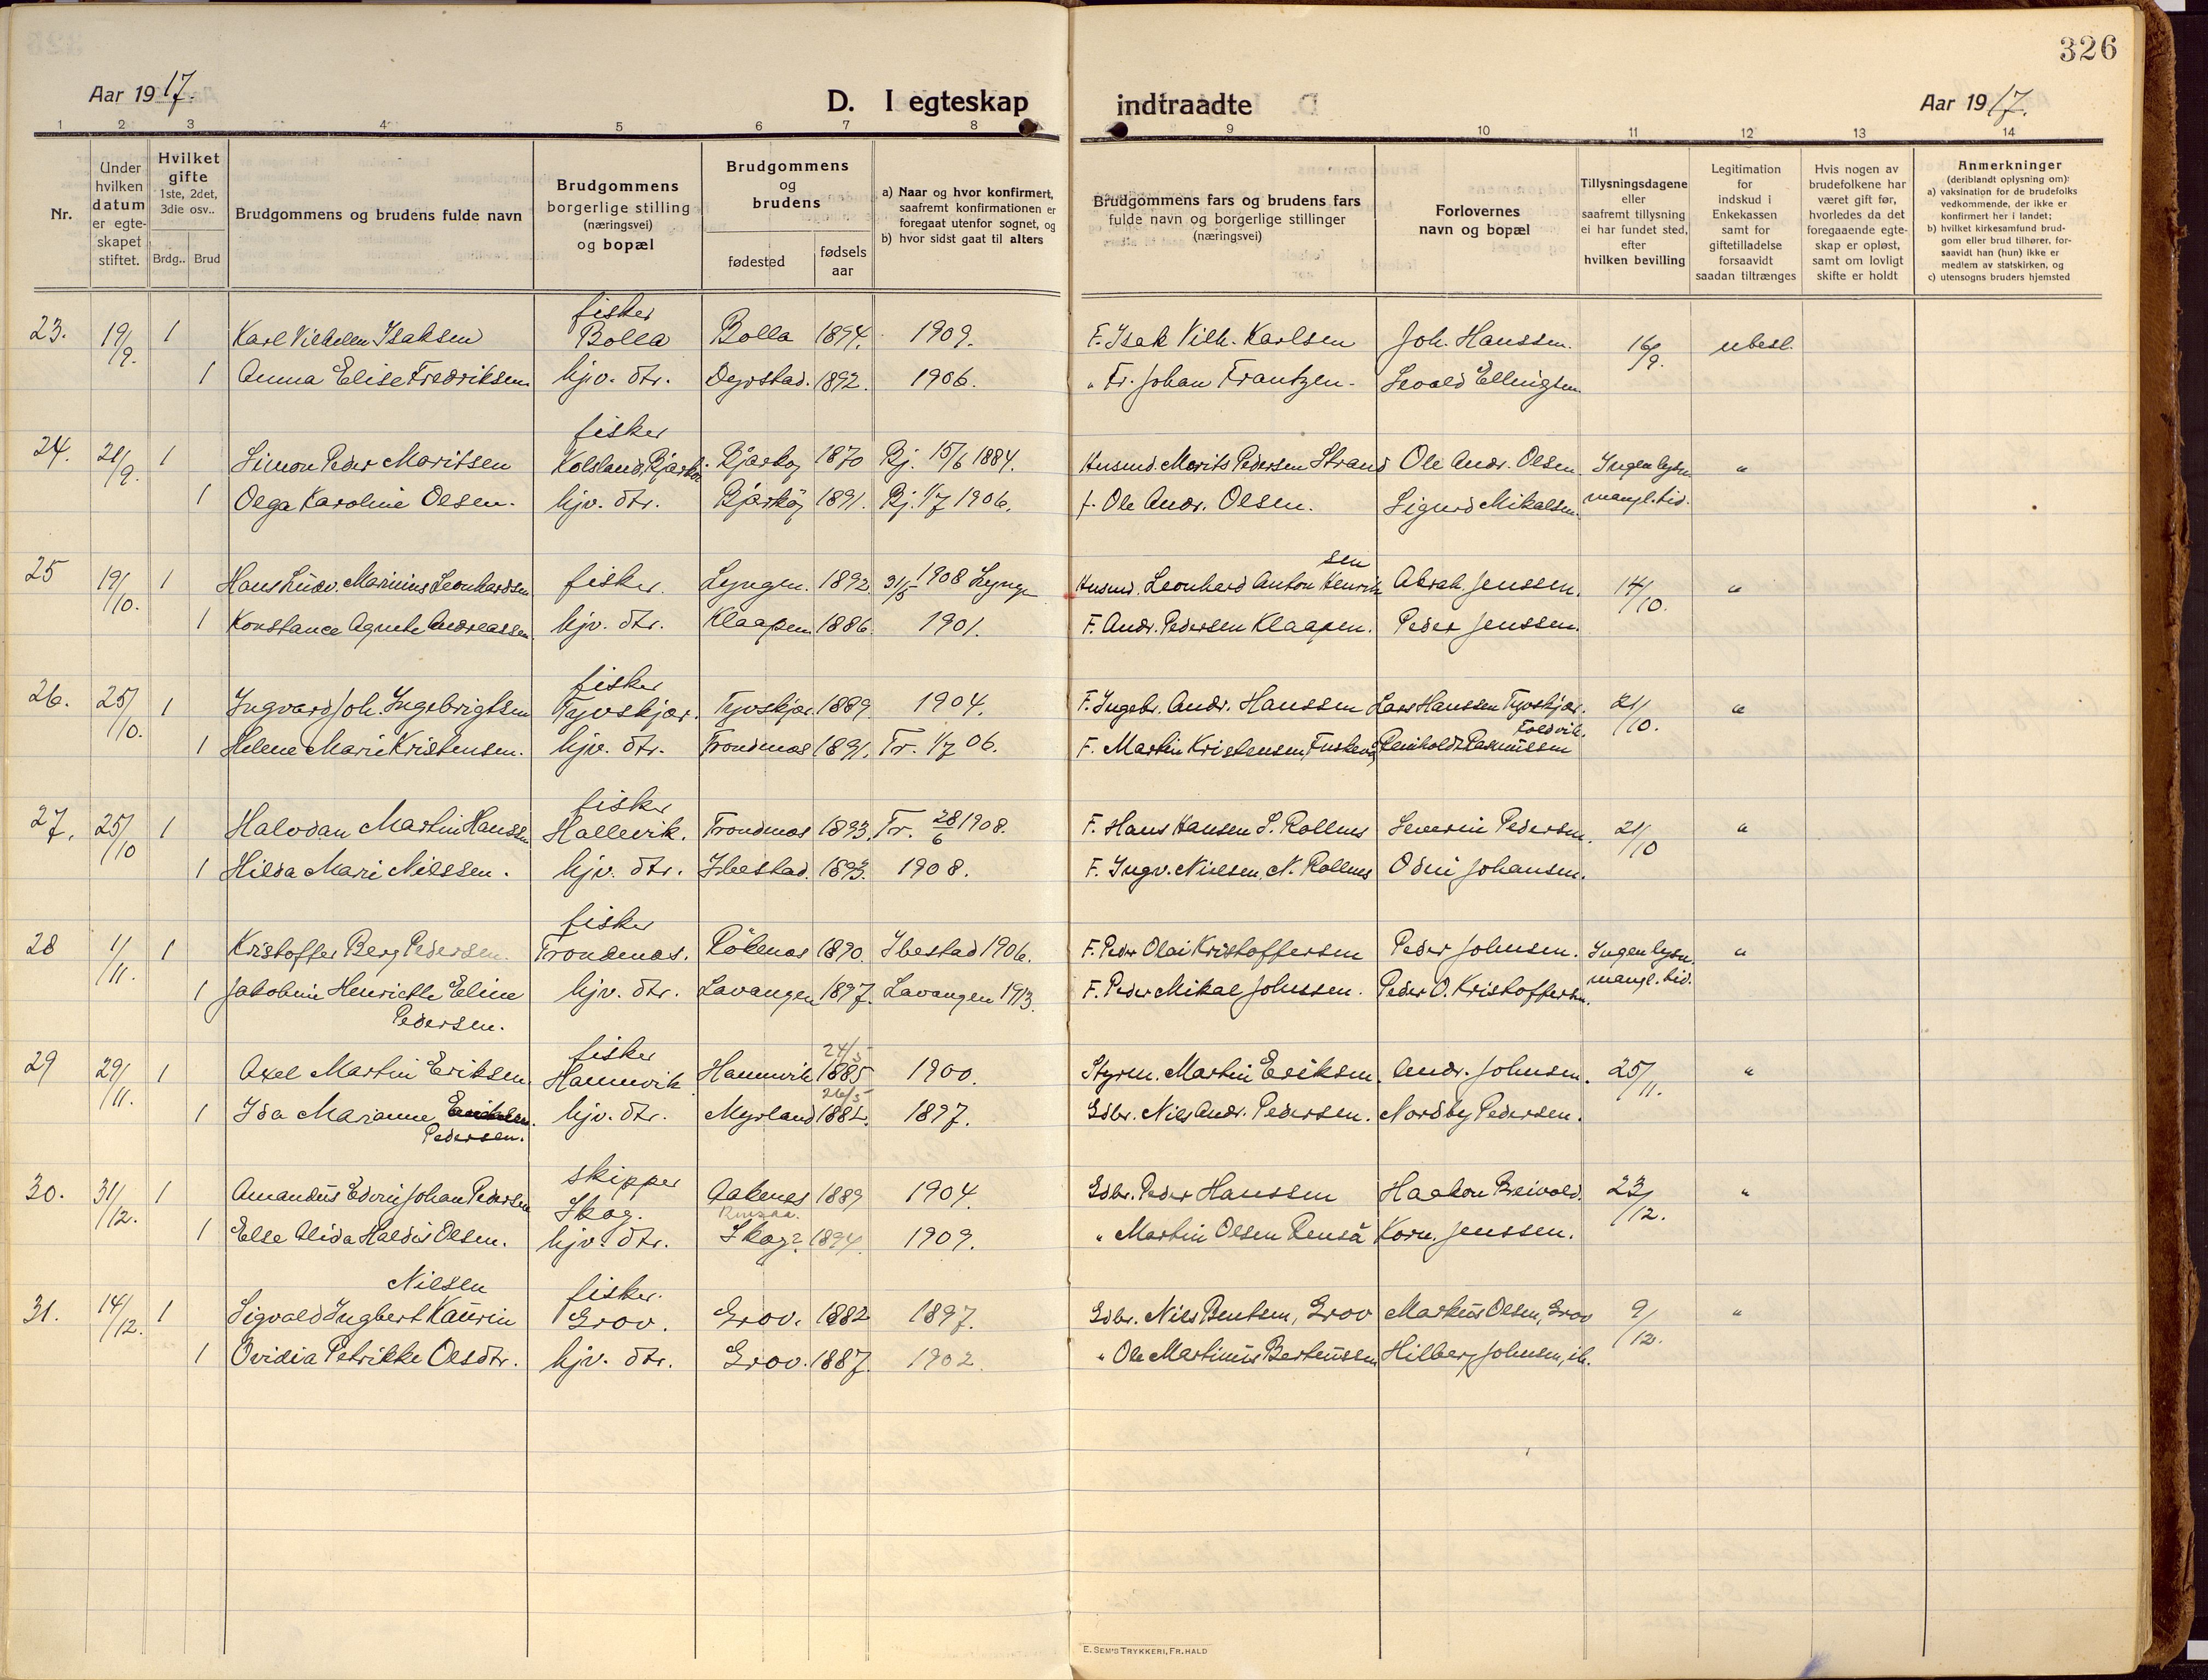 326
Aar 1917.
D. I egteskap
indtraadte
Aar 1917.
1 2 3 4 5 6 7 8 9 10 11 12 13 14
Nr.
Under
hvilken
datum
er egte-
skapet
stiftet.
Hvilket
gifte
1ste, 2det,
3die osv..
Brdg.. Brud
Brudgommens og brudens fulde navn
Brudgommens
borgerlige stilling
(næringsvei)
og bopæl
Brudgommens
og
brudens
fødested
fødsels
aar
a) Naar og hvor konfirmert,
saafremt konfirmationen er
foregaat utenfor sognet, og
b) hvor sidst gaat til alters
Brudgommens fars og brudens fars
fulde navn og borgerlige stillinger
(næringsvei)
Forlovernes
navn og bopæl
Tillysningsdagene
eller
saafremt tillysning
ei har fundet sted,
efter
hvilken bevilling
Legitimation
for
indskud i
Enkekassen
samt for
giftetilladelse
forsaavidt
saadan tiltrænges
Hvis nogen av
brudefolkene har
været gift før,
hvorledes da det
foregaaende egte-
skap er opløst,
samt om lovligt
skifte er holdt
Anmerkninger
(deriblandt oplysning om):
a) vaksination for de brudefolks
vedkommende, der ikke er
konfirmert her i landet;
b) hvilket kirkesamfund brud-
gom eller brud tilhører, for-
saavidt han (hun) ikke er
medlem av statskirken, og
c) utensogns bruders hjemsted
fisker
23. 19/9. 1 Karl Vilhelm Isaksen Bolla Bolla 1894. 1909. F. Isak Vilh. Karlsen Joh. Hanssen. 16/9. ubesl.
1 Anna Elise Fredriksen. hjv. dtr. Dyrstad. 1892. 1906. " Fr. Johan Frantzen. Sevald Ellingsen
fisker
24. 21/9. 1 Simon Peder Maritsen Kolsland, Bjarkö. Bjarköy 1870 Bj. 15/6 1884. Husmd. Morits Pedersen Strand Ole Andr. Olsen Ingen lysn. "
1 Olga Karoline Olsen. hjv. dtr. Bjarköy 1891. Bj. 1/7 1906. f. Ole Andr. Olsen. Sigurd Mikalsen. mangl. tid.
sen
25 19/10. 1 Hans Ludv. Marinius Leonhardsen fisker. Lyngen. 1892. 31/5 1908 Lyngen Husmd. Leonhard Anton Henrik Abrah. Jenssen. 14/10. "
1 Konstance Agnete Andreassen. hjv. dtr. Klaapen. 1886. 1901. F. Andr. Pedersen Klaapen. Peder Jenssen.
fisker
26. 25/10. 1 Ingvard Joh. Ingebrigtsen Tyvskjær. Tyvskjær. 1889. 1904. F. Ingebr. Andr. Hanssen Lars Hanssen Tyvskjær. 21/10. "
Foldvik.
1 Helene Marie Kristensen. hjv. dtr. Trondenes 1891. Tr. 1/7 06. F. Martin Kristensen, Reinholdt Rasmussen
fisker
27. 25/10 1 Halvdan Martin Hanssen Hallevik. Trondenes 1893. Tr. 28/6 1908. F. Hans Hansen S. Rollnes Severin Pedersen. 21/10 "
1 Hilda Mari Nilssen. hjv. dtr. Ibestad. 1893. 1908. F. Ingv. Nielsen, N. Rollnes Odin Johansen.
fisker
28 1/11. 1 Kristoffer Berg Pedersen. Trondenes. Rökenes 1890. Ibestad 1906. F. Peder Olai Kristoffersen Peder Johnsen. Ingen lysn. "
1 Jakobine Henriette Eline hjv. dtr. Lavangen 1897. Lavangen 1913. F. Peder Mikal Johnsen. Peder O. Kristoffersen. mangl. tid.
Pedersen.
fisker 24/3
29 29/11. 1 Axel Martin Eriksen Hamnvik Hamnvik 1885 1900. Styrm. Martin Eriksen. Andr. Johnsen. 25/11. "
26/5
1 Ida Marianne hjv. dtr. Myrland 1882. 1897. Gdbr. Nils Andr. Pedersen. Nordby Pedersen.
Pedersen.
skipper
30. 31/12. 1 Amandus Edvin Johan Pedersen Skog. Aakenes 1889 1904. Gdbr. Peder Hanssen Haakon Breivold. 23/12. "
Rensaa.
1 Else Alida Haldis Olsen. hjv. dtr. Skog? 1894. 1909. " Martin Olsen Renså Korn. Jenssen.
Nilsen fisker.
31. 14/12. 1 Sigvald Ingbert Kaurin Grov. Grov. 1882 1897. Gdbr. Nils Bentsen, Grov Markus Olsen, Grov 9/12. "
1 Ovidia Petrikke Olsdtr. hjv. dtr. Grov. 1887. 1902. " Ole Martinus Berteussen Hilberg Johnsen, ib.
E. SEM'S TRYKKERI, FR.HALD